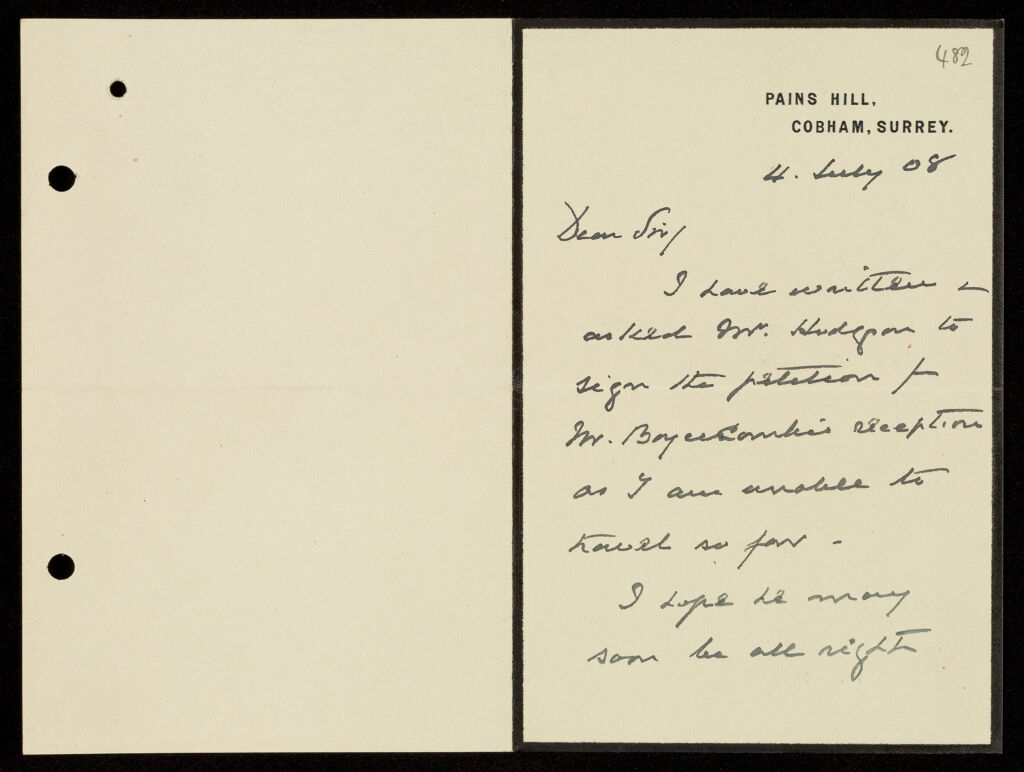 482
PAINS HILL,
COBHAM, SURREY.
4. July 08
Dear Sir/
I have written &
asked Mr. Hudgson to
sign the petition for
Mr. Boycecombe's reception
as I am unable to
travel so far -
I hope he may
soon be all right